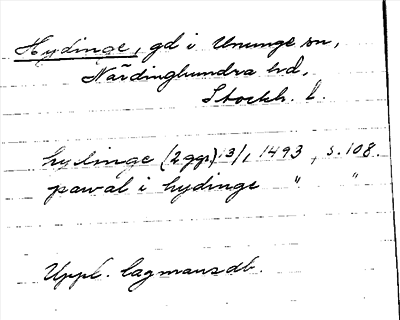 Hydinge, gd i Ununge sn,
Närdinghundra hd,
Stockh. l.
hydinge (2 ggr) 13/1 1493, s. 108.
pawal i hydinge " "
Uppl. lagmansdb.